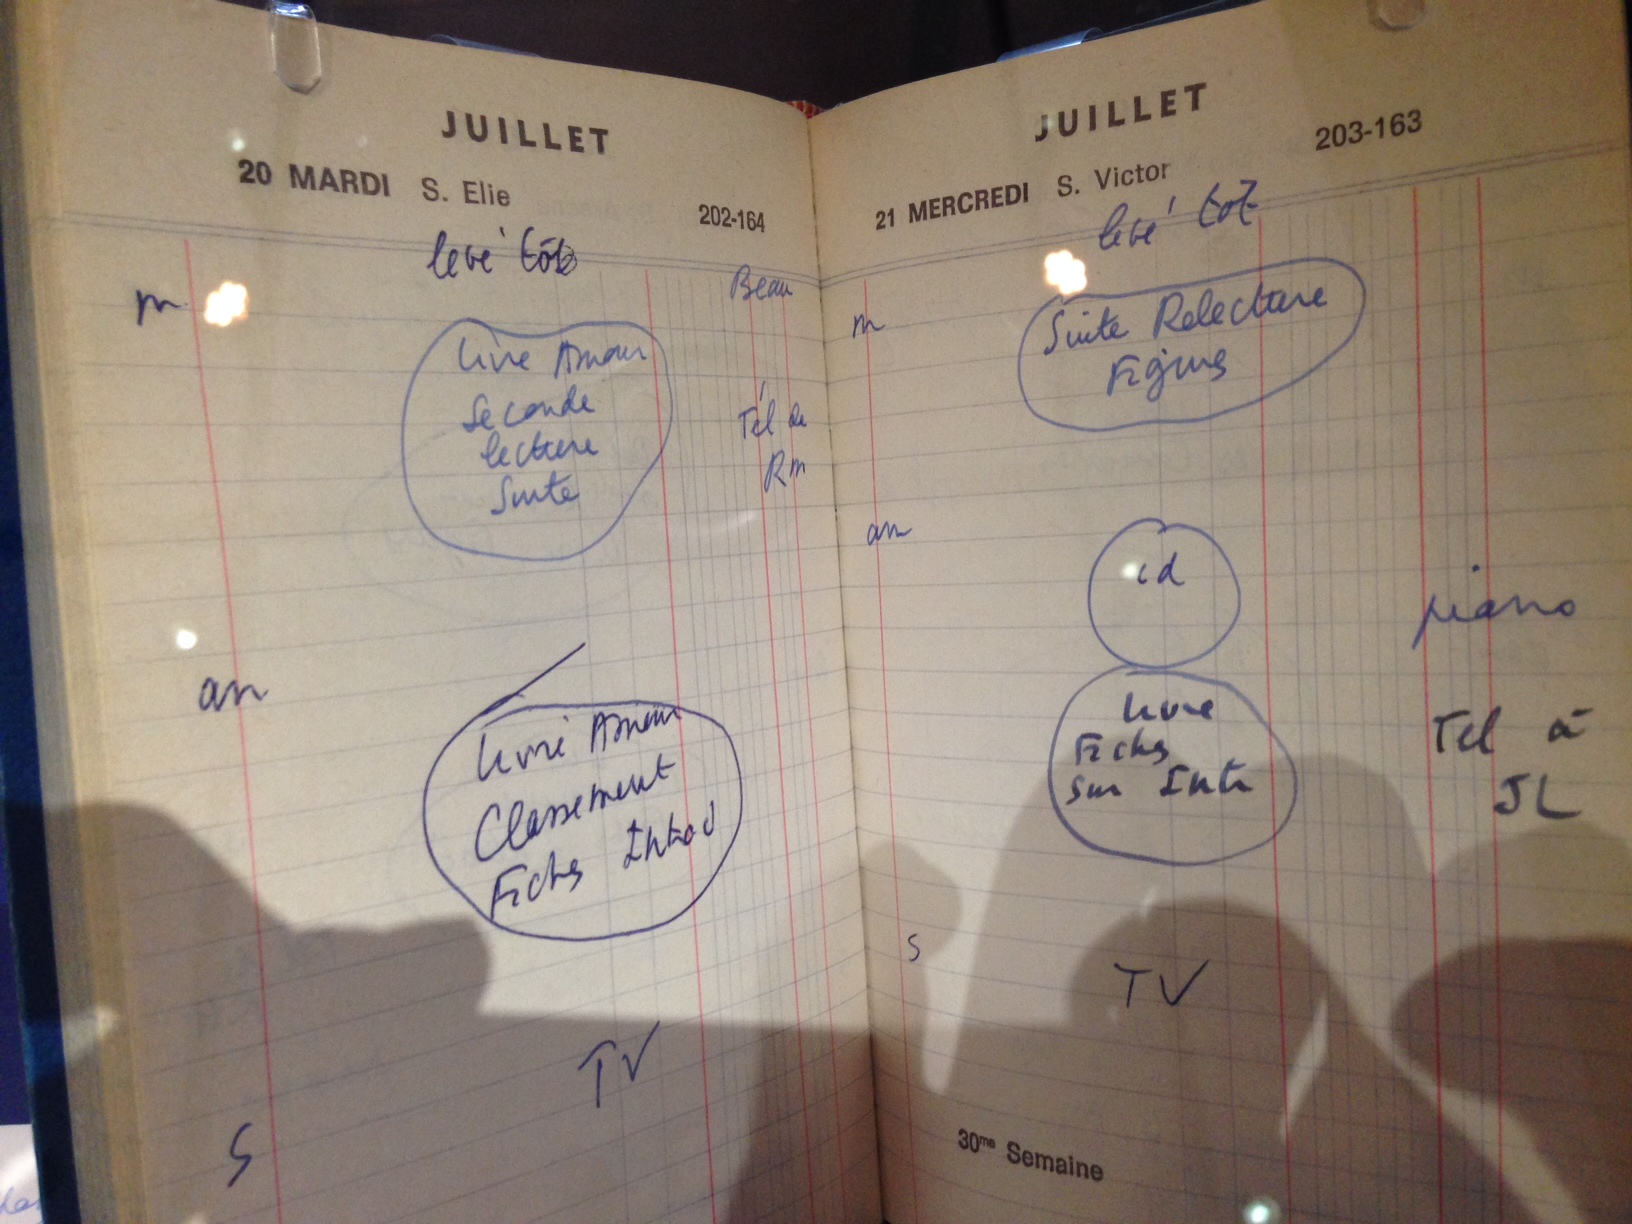 JUILLET
20 MARDI S. Elie
202-164
levé tôt
m
Beau
Livre Amour
Seconde
lecture
Suite
Tél de
Rm
an
Livre Amour
Classement
Fiches Introd
TV
S
JUILLET
203-163
21 MERCREDI S. Victor
levé tôt
m
Suite Relecture
Figures
an
id
piano
Livre
Fiches
sur Intr
Tel à
JL
S
TV
30me Semaine